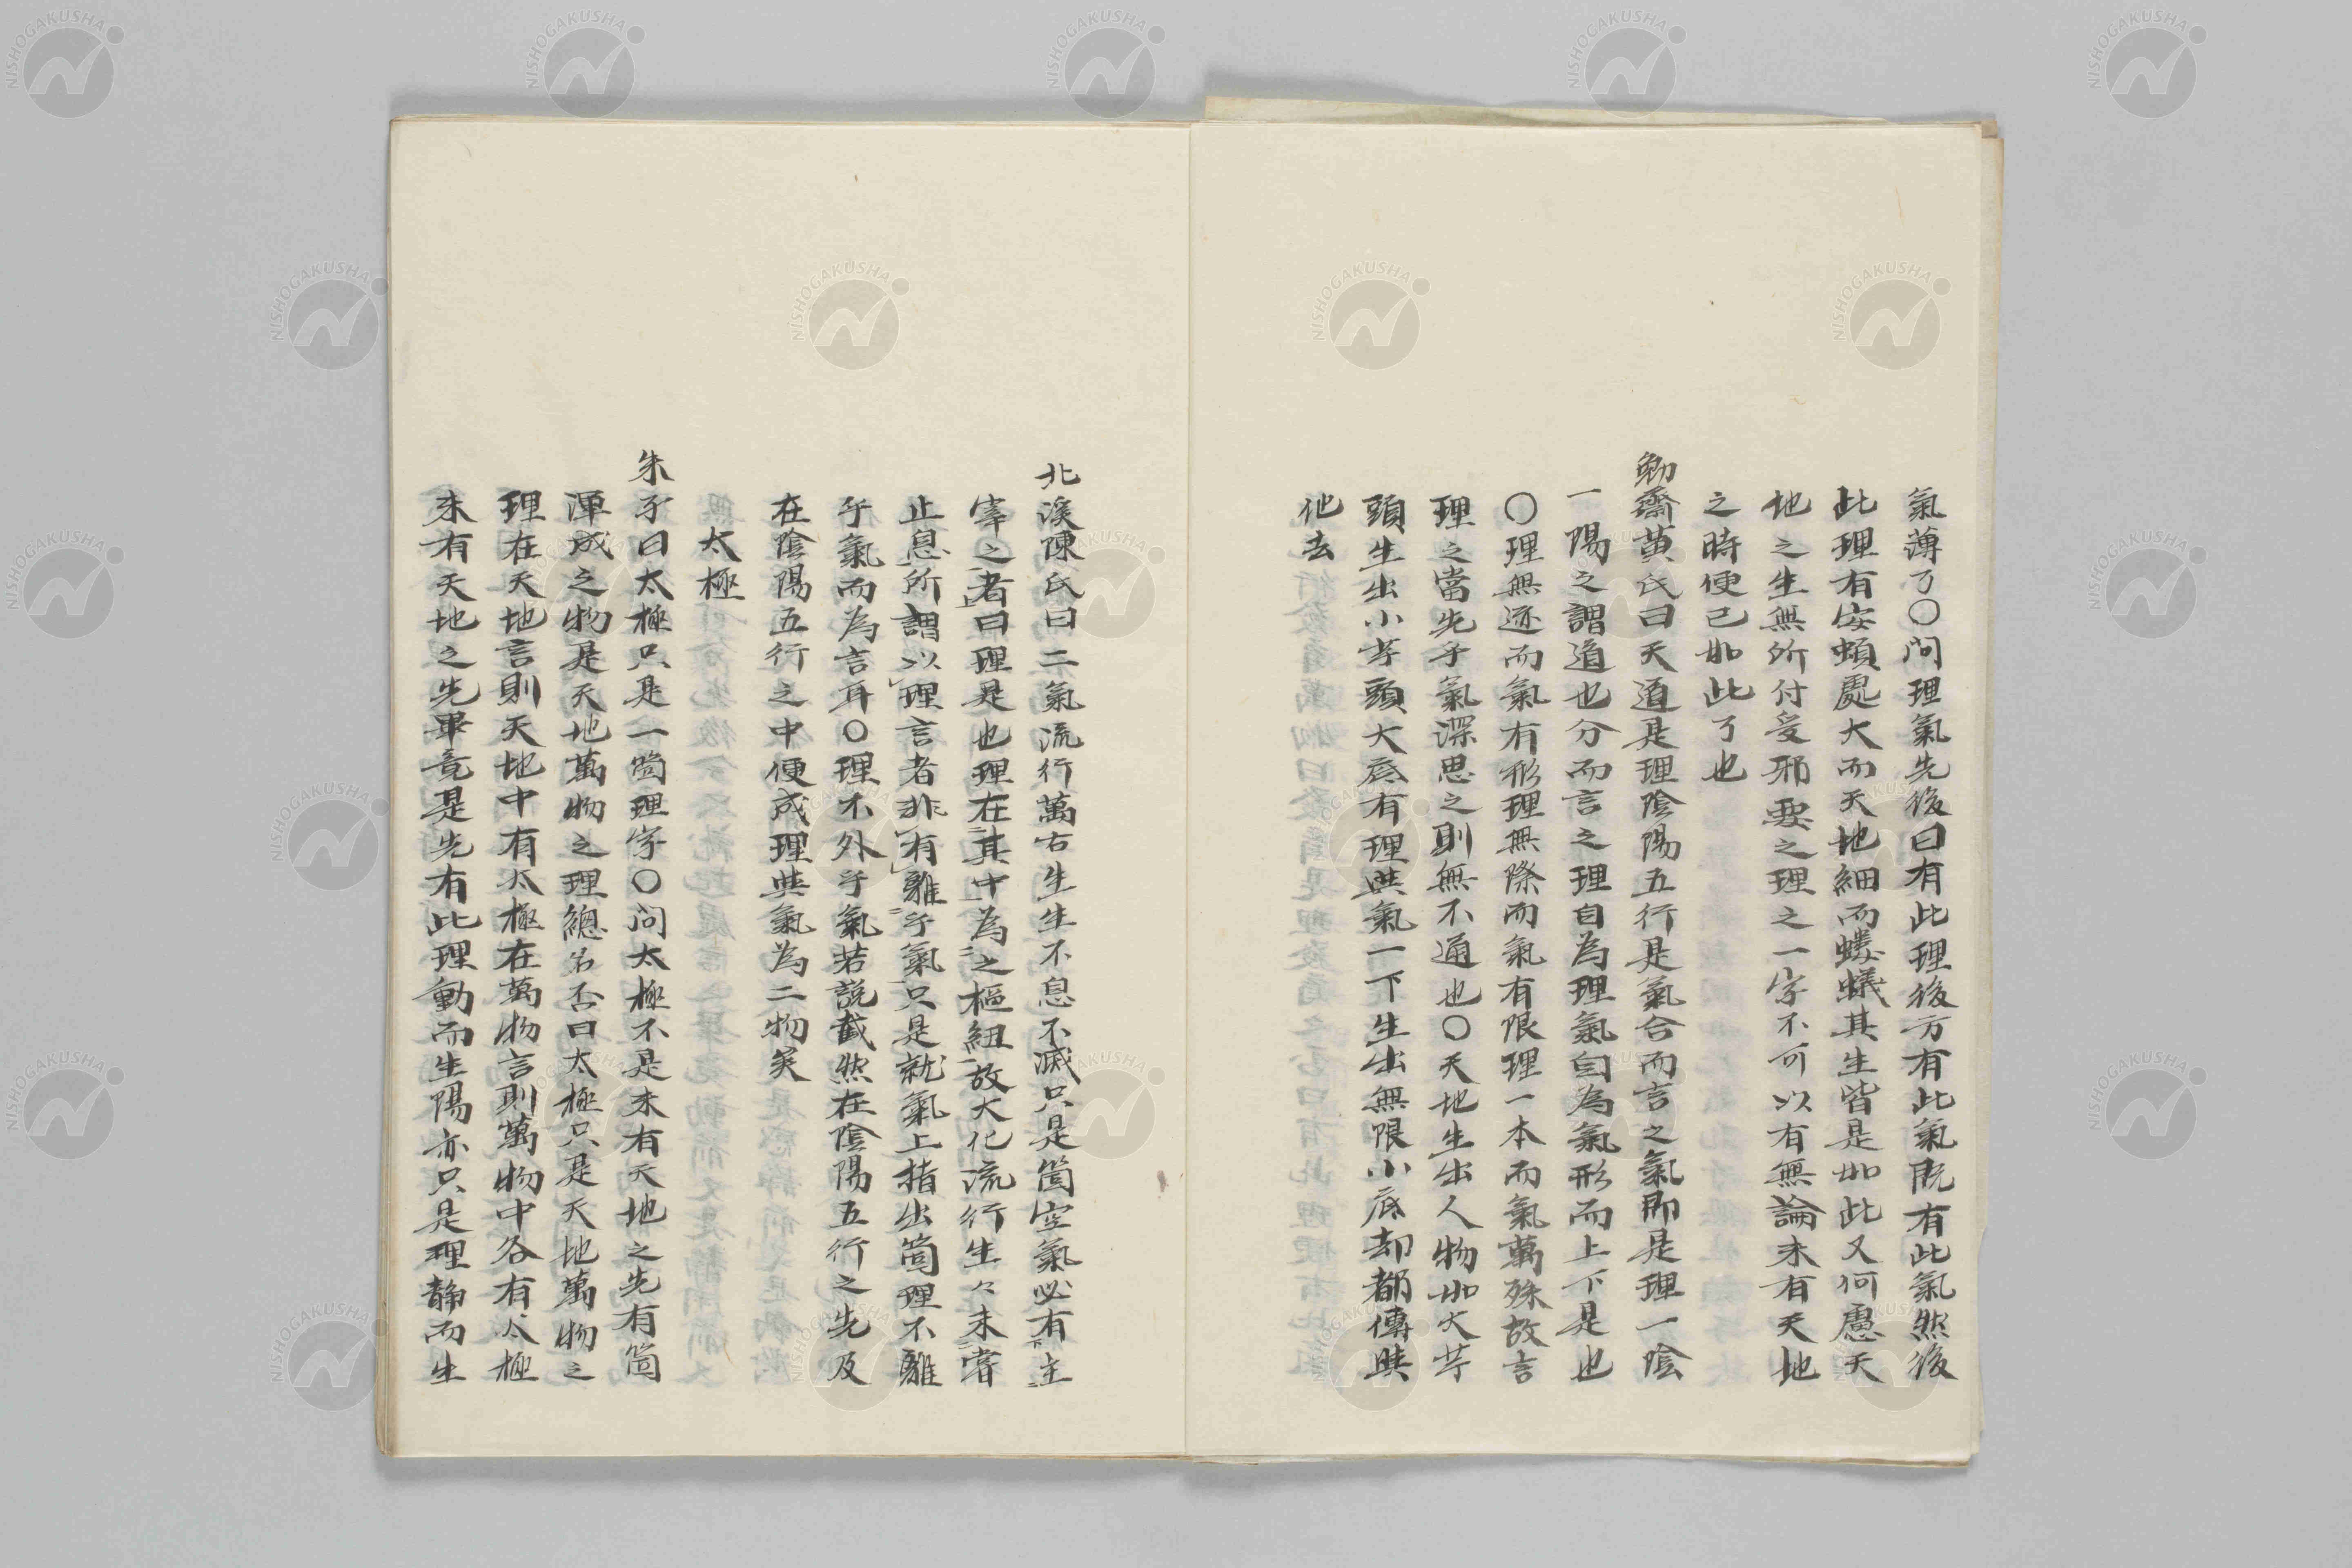 氣薄了〇问理氣先後曰有此理後方有此氣既有此氣然後
此理有安頓處大而天地細而螻蟻其生皆是如此又何慮天
地之生無所付受邪要之理之一字不可以有無論未有天地
之時便已如此了也
勉齋黃氏曰天道是理陰陽五行是氣合而言之氣即是理一陰
一陽之謂道也分而言之理自為理氣自為氣形而上下是也
〇理無迹而氣有形理無際而氣有限理一本而氣萬殊故言
理之當先乎氣深思之則無不通也〇天地生出人物如大芋
頭生出小芋頭大底有理與氣一下生出無限小底却都傳與
他去
北溪陳氏曰二氣流行萬古生生不息不滅只是箇空氣必有主
宰之者曰理是也理在其中為之樞紐故大化流行生々未嘗
止息所謂以理言者非有離乎氣只是就氣上指出箇理不離
乎氣而為言耳〇理不外乎氣若說截然在陰陽五行之先及
在陰陽五行之中便成理與氣為二物矣
太極
朱子曰太極只是一箇理字〇问太極不是未有天地之先有箇
渾成之物是天地萬物之理總名否曰太極只是天地萬物之
理在天地言則天地中有太極在萬物言則萬物中各有太極
未有天地之先畢竟是先有此理動而生陽亦只是理静而生
NISHOGAKUSHA